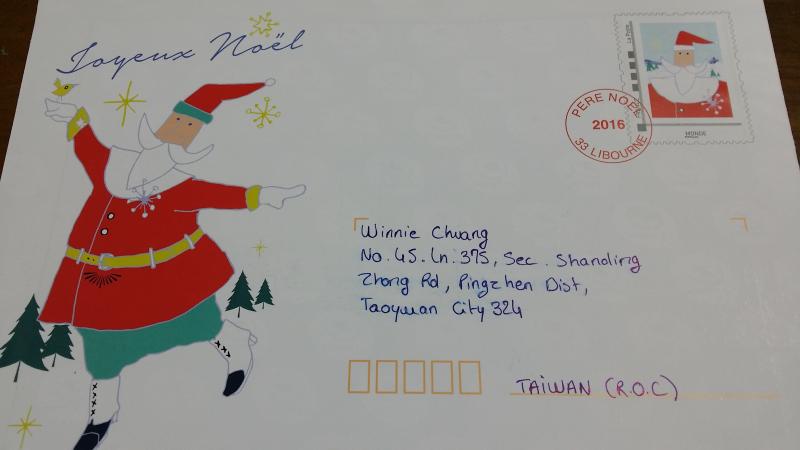 Joyeux Noël
La Poste
MONDE
PERE NOËL
2016
33 LIBOURNE
Winnie Chuang
No. 45. Ln. 375, Sec. Shanding
Zhong Rd, Pingzhen Dist,
Taoyuan City 324
TAIWAN (R.O.C)